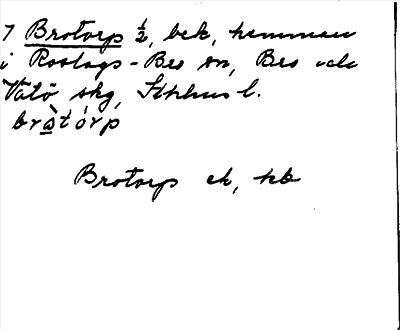 7 Brotorp ½, bek, hemman
i Roslags-Bro sn, Bro och
Vätö skg, Sthlms l.
bròtórp
Brotorp ek, kb